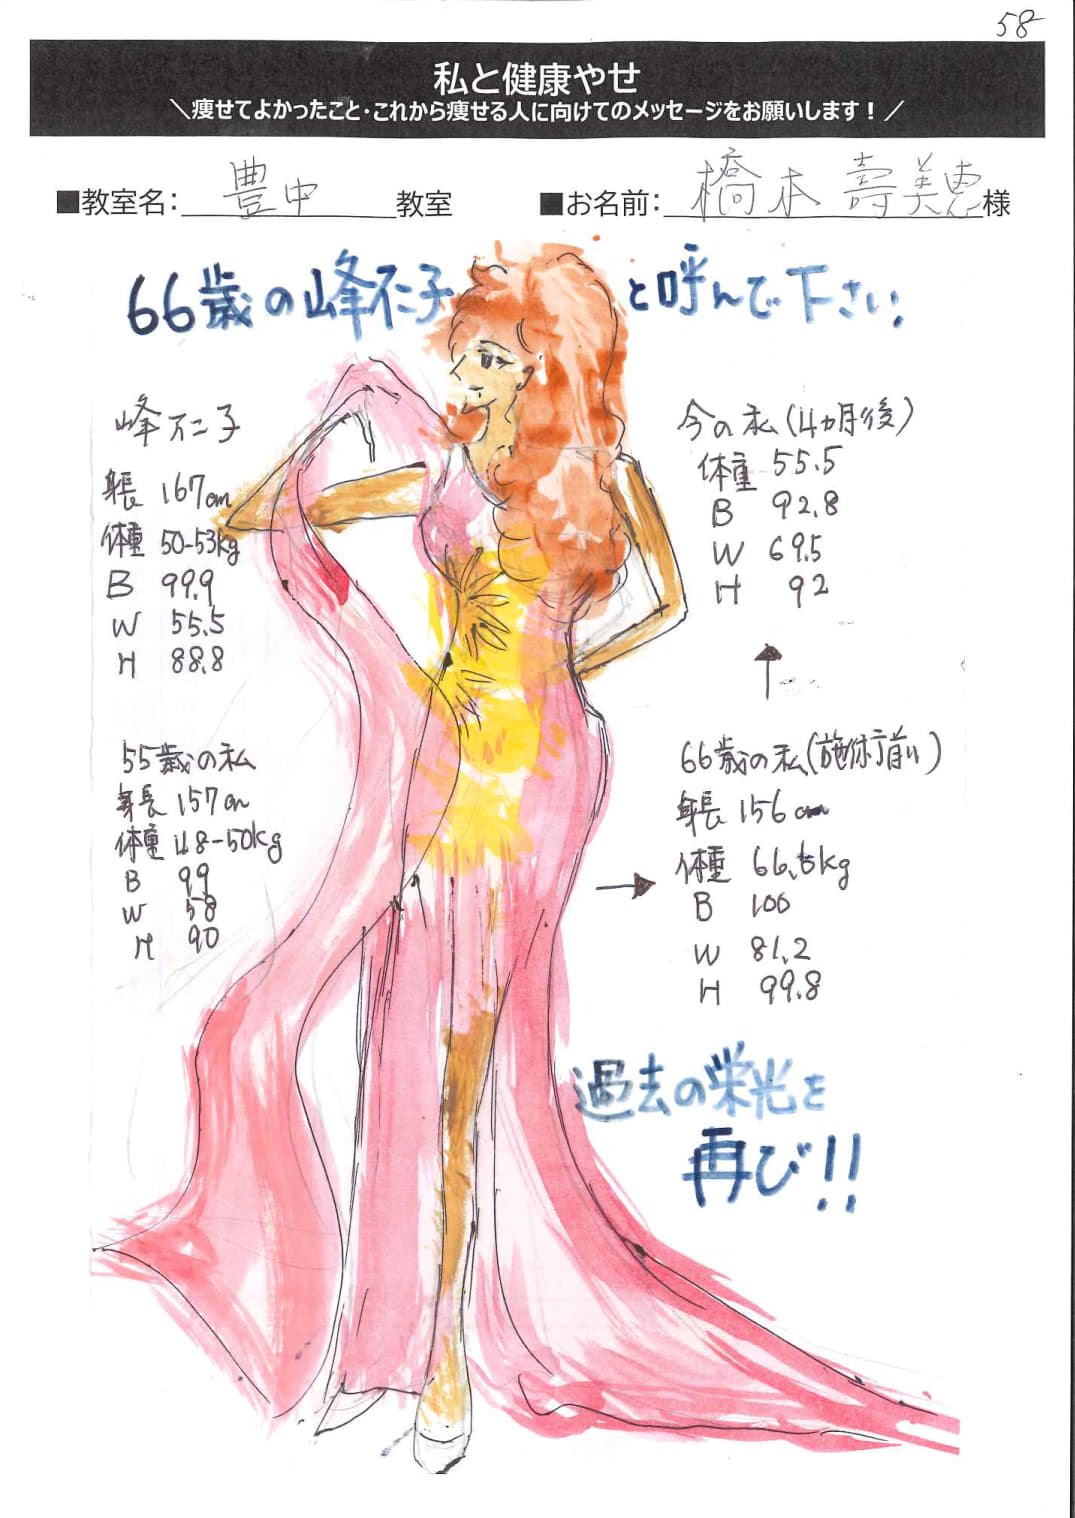 58
私と健康やせ
＼痩せてよかったこと・これから痩せる人に向けてのメッセージをお願いします！／
■教室名： 豊中 教室
■お名前： 橋本 壽美恵 様
66歳の峰不二子と呼んで下さい!
峰不二子
身長 167cm
体重 50-53kg
B 99.9
W 55.5
H 88.8
55歳の私
身長 157cm
体重 48-50kg
B 99
W 58
H 90
→
66歳の私(施術前)
身長 156cm
体重 66.6kg
B 100
W 81.2
H 99.8
↑
今の私(4ヵ月後)
体重 55.5
B 92.8
W 69.5
H 92
過去の栄光を
再び!!